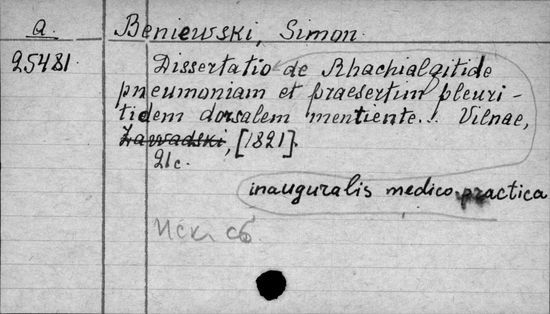 a. Beniewski, Simon.
25481. Dissertatio de Rhachialgitide
pneumoniam et praesertim pleuri-
tidem dorsalem mentiente... Vilnae,
Zawadski, [1821].
21 с.
inauguralis medico-practica
Иск сб